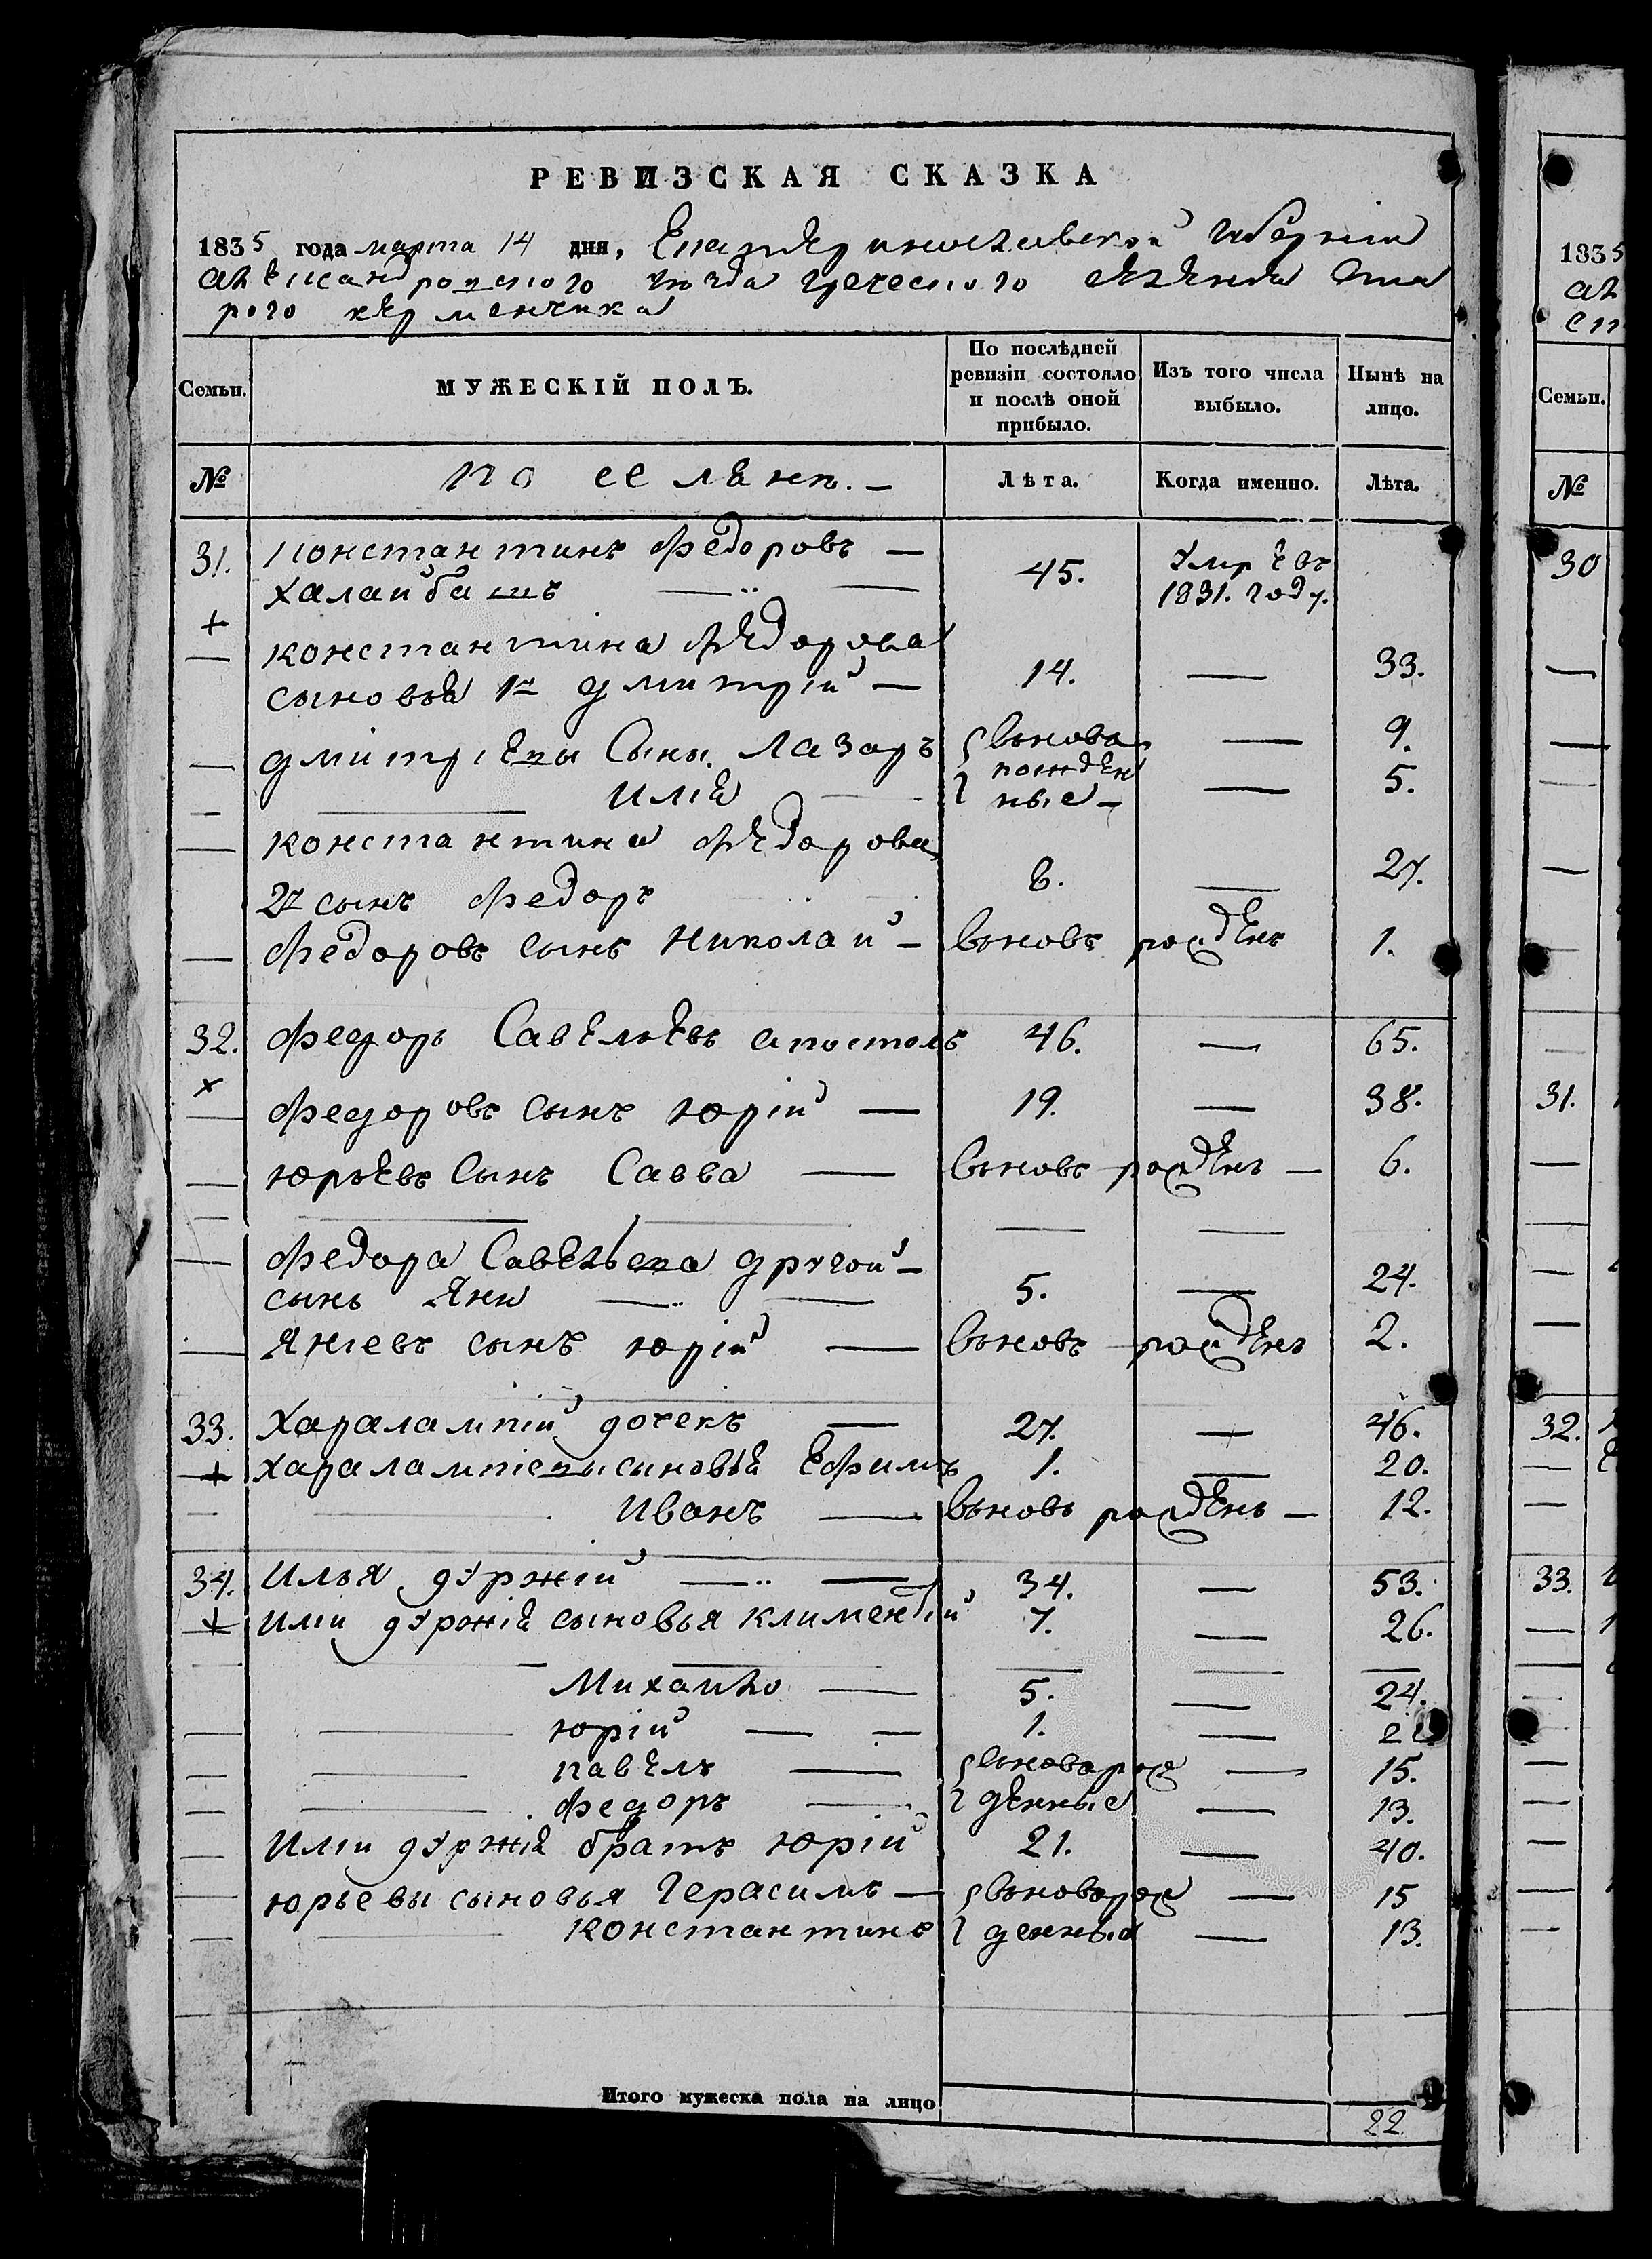 РЕВИЗСКАЯ СКАЗКА
1835 года марта 14 дня, Екатеринославской губернии
александровского уезда греческого селения Ста
рого керменчика
Семьи. МУЖЕСКІЙ ПОЛЪ. По послѣдней ревизіи состояло и послѣ оной прибыло. Изъ того числа выбыло. Нынѣ на лицо.
№ поселянъ. — Лѣта. Когда именно. Лѣта.
31. Константинъ Федоровъ —
Халайбашъ — — 45. Умрѣ въ 1831. году.
+
— константина Федорова
сыновья 1й дмитрій — 14. — 33.
— дмитріевы Сыны Лазарь вновь — 9.
— — Илія рожден ные — — 5.
— константина Федорова
2й сынъ Федоръ 8. — 27.
— Федоровъ сынъ Николай — вьновь рожденъ 1.
32. Федоръ Савельевъ апостолъ 46. — 65.
× — Федоровъ сынъ юрій — 19. — 38.
— юрьевъ Сынъ Савва — вьновь рожденъ — 6.
— — — — —
— Федора Савельева другой —
сынъ Яни — — 5. — 24.
— Яніевъ сынъ юрій — вьновь рожденъ 2.
33. Харалампій дочекъ — 27. — 46.
+ Харалампіевы сыновья Ефимъ 1. — 20.
— — Иванъ — вьновь рожденъ — 12.
34. Илья дуржій — — 34. — 53.
+ Иліи дуржія сыновья климентій 7. — 26.
— — — — — —
Михайло — 5. — 24.
— — юрій — — 1. — 2
— — павелъ — вьново рож — 15.
— — Федоръ — денные — 13.
— Иліи дуржія братъ юрій 21. — 40.
— юрьевы сыновья Герасимъ — вьново рож — 15
— — константинъ денные — 13.
Итого мужеска пола на лицо 22
1835
ал
ст
Семьи.
№
30
—
31.
—
32.
—
33.
—